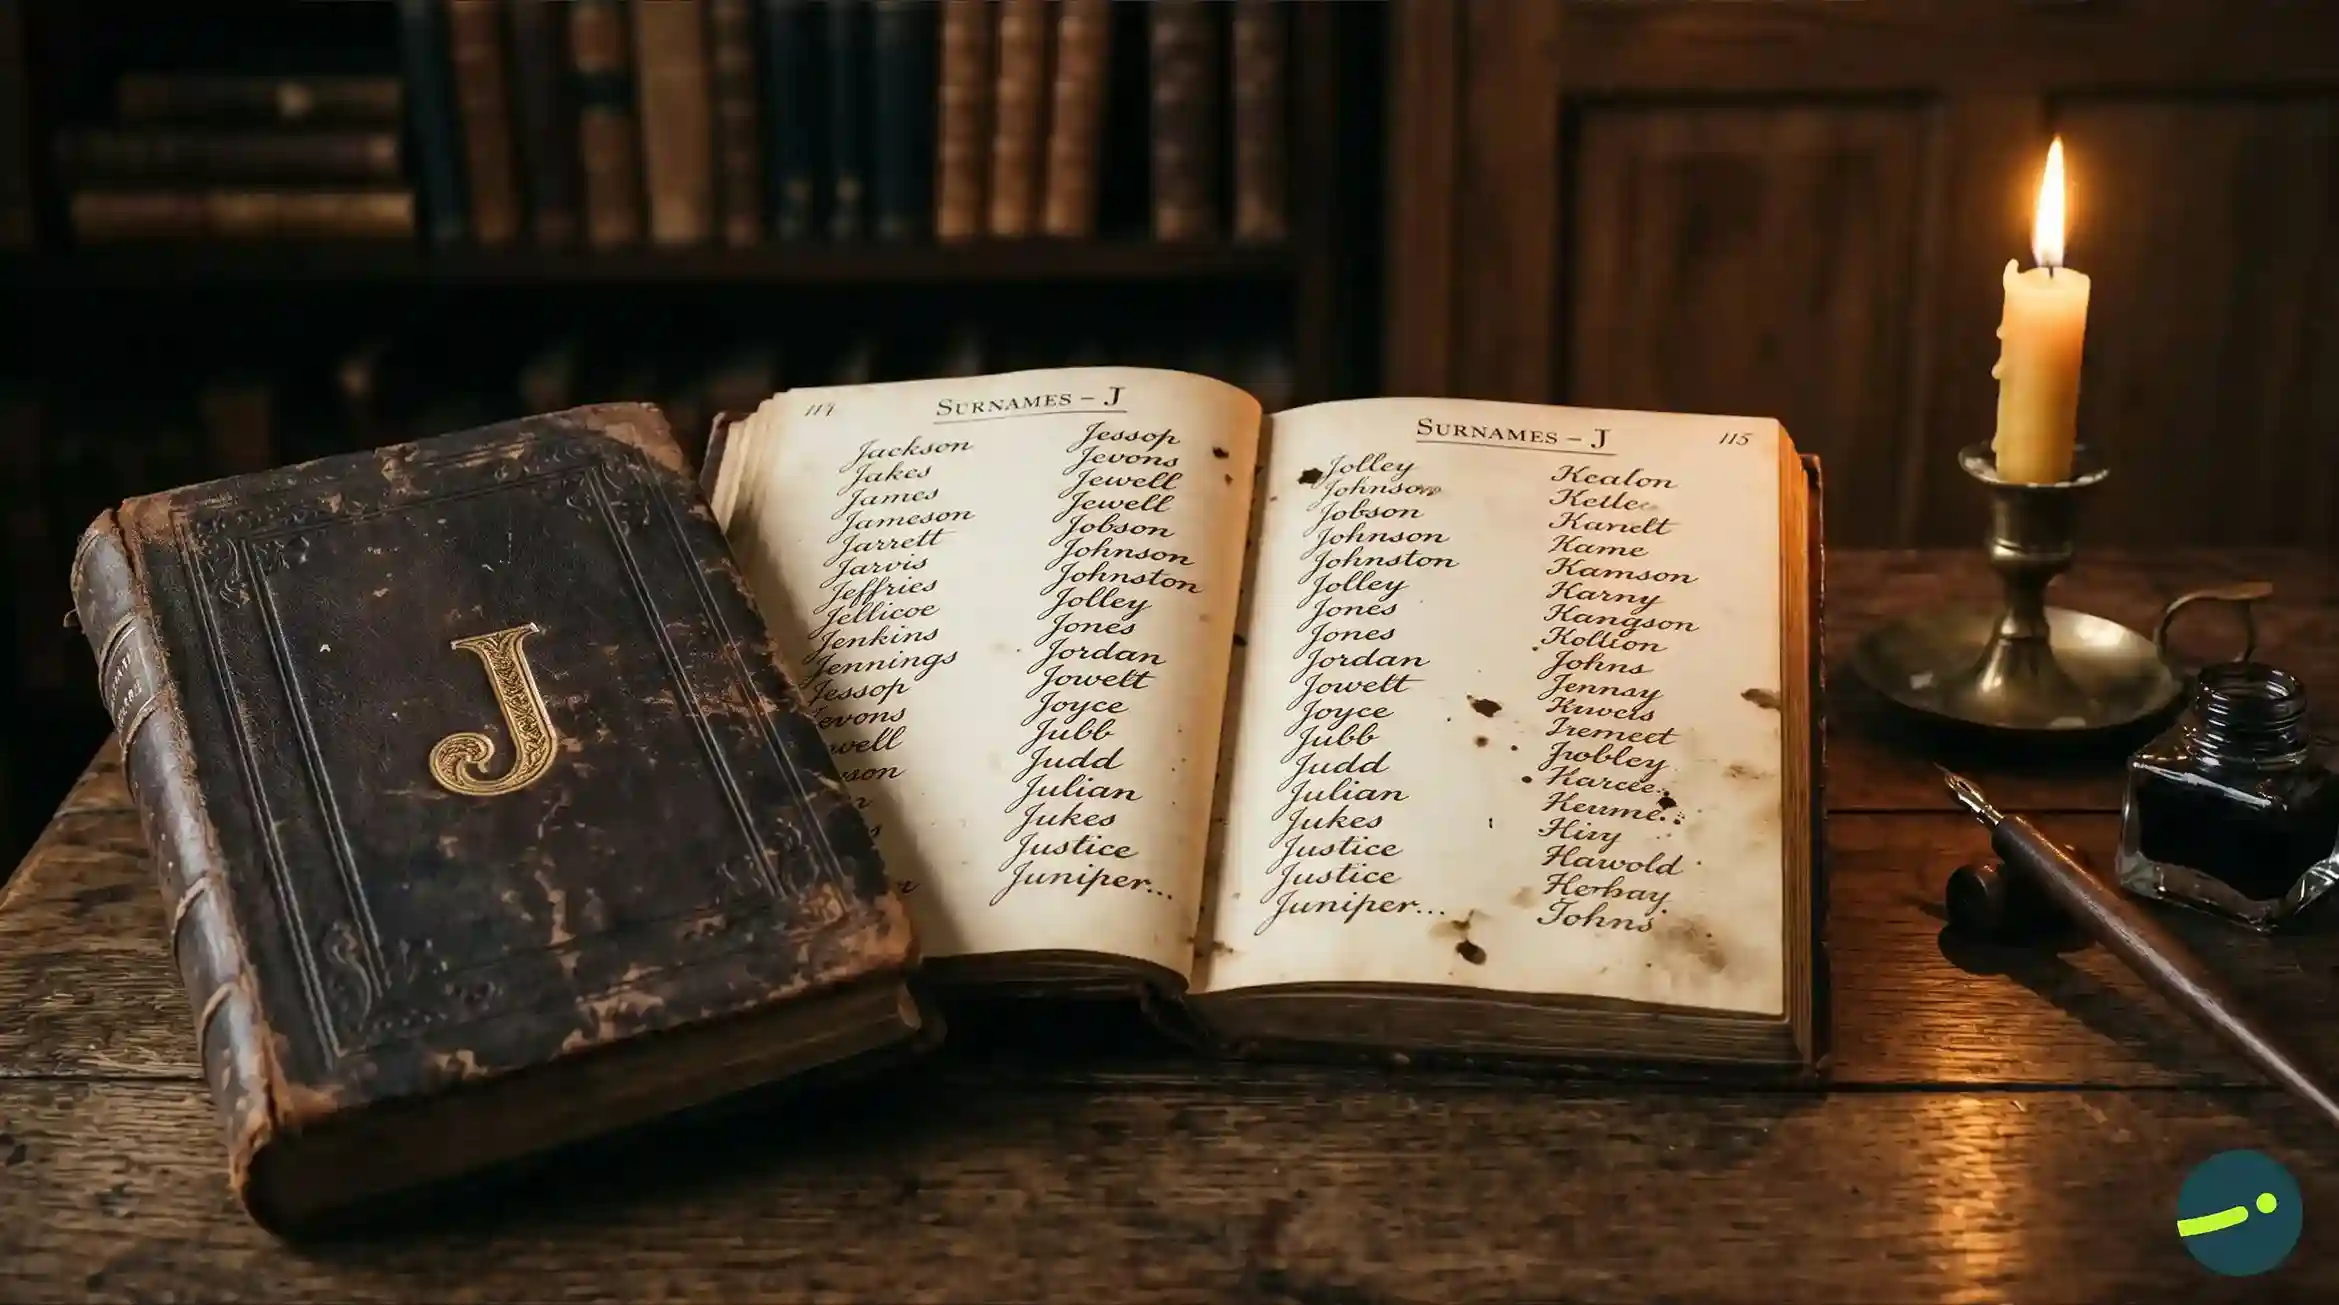 J
114
SURNAMES – J
Jackson
Jakes
James
Jameson
Jarrett
Jarvis
Jeffries
Jellicoe
Jenkins
Jennings
Jessop
evons
well
son
Jessop
Jevons
Jewell
Jewell
Jobson
Johnson
Johnston
Jolley
Jones
Jordan
Jowett
Joyce
Jubb
Judd
Julian
Jukes
Justice
Juniper...
SURNAMES – J
115
Jolley
Johnson
Jobson
Johnson
Johnston
Jolley
Jones
Jones
Jordan
Jowett
Joyce
Jubb
Judd
Julian
Jukes
Justice
Justice
Juniper...
Kealon
Kelle
Kanelt
Kame
Kamson
Harny
Kangson
Kollion
Johns
Jennsy
Kuweis
Iremeet
Jrobley
Karcee.
Keume..
Hivy
Harwold
Herbay
Johns